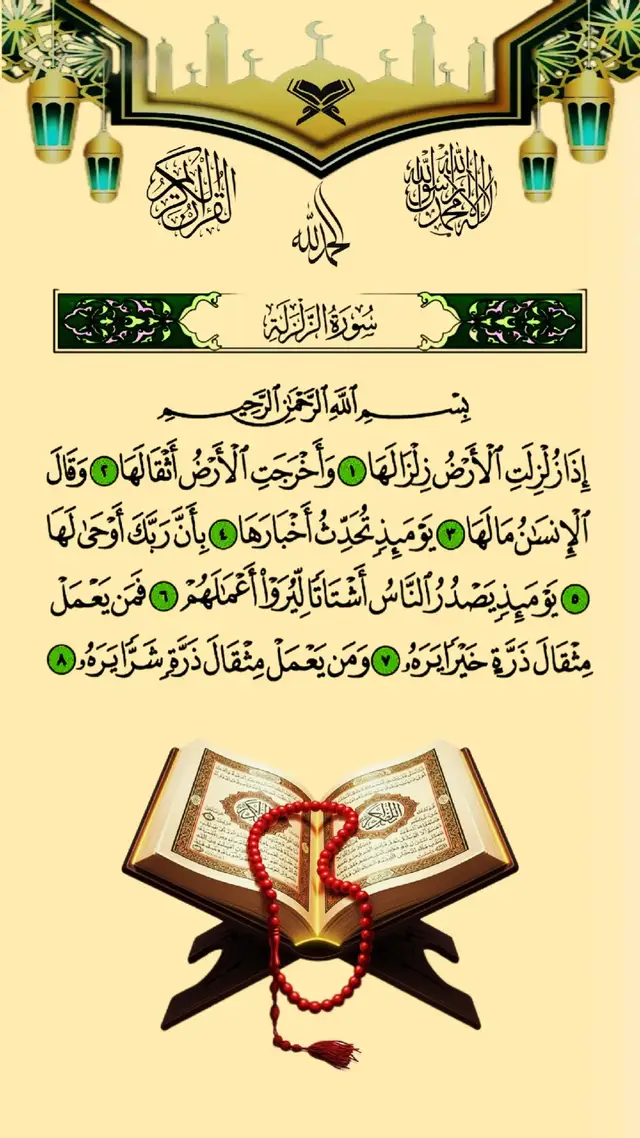 القرآن الكريم
لا إله إلا الله محمد رسول الله
الحمد لله
سُورَةُ الزَّلْزَلَةِ
بِسْمِ ٱللَّهِ ٱلرَّحْمَٰنِ ٱلرَّحِيمِ
إِذَا زُلْزِلَتِ ٱلْأَرْضُ زِلْزَالَهَا ١ وَأَخْرَجَتِ ٱلْأَرْضُ أَثْقَالَهَا ٢ وَقَالَ
ٱلْإِنسَٰنُ مَا لَهَا ٣ يَوْمَئِذٍ تُحَدِّثُ أَخْبَارَهَا ٤ بِأَنَّ رَبَّكَ أَوْحَىٰ لَهَا
٥ يَوْمَئِذٍ يَصْدُرُ ٱلنَّاسُ أَشْتَاتًا لِّيُرَوْا۟ أَعْمَٰلَهُمْ ٦ فَمَن يَعْمَلْ
مِثْقَالَ ذَرَّةٍ خَيْرًا يَرَهُۥ ٧ وَمَن يَعْمَلْ مِثْقَالَ ذَرَّةٍ شَرًّا يَرَهُۥ ٨